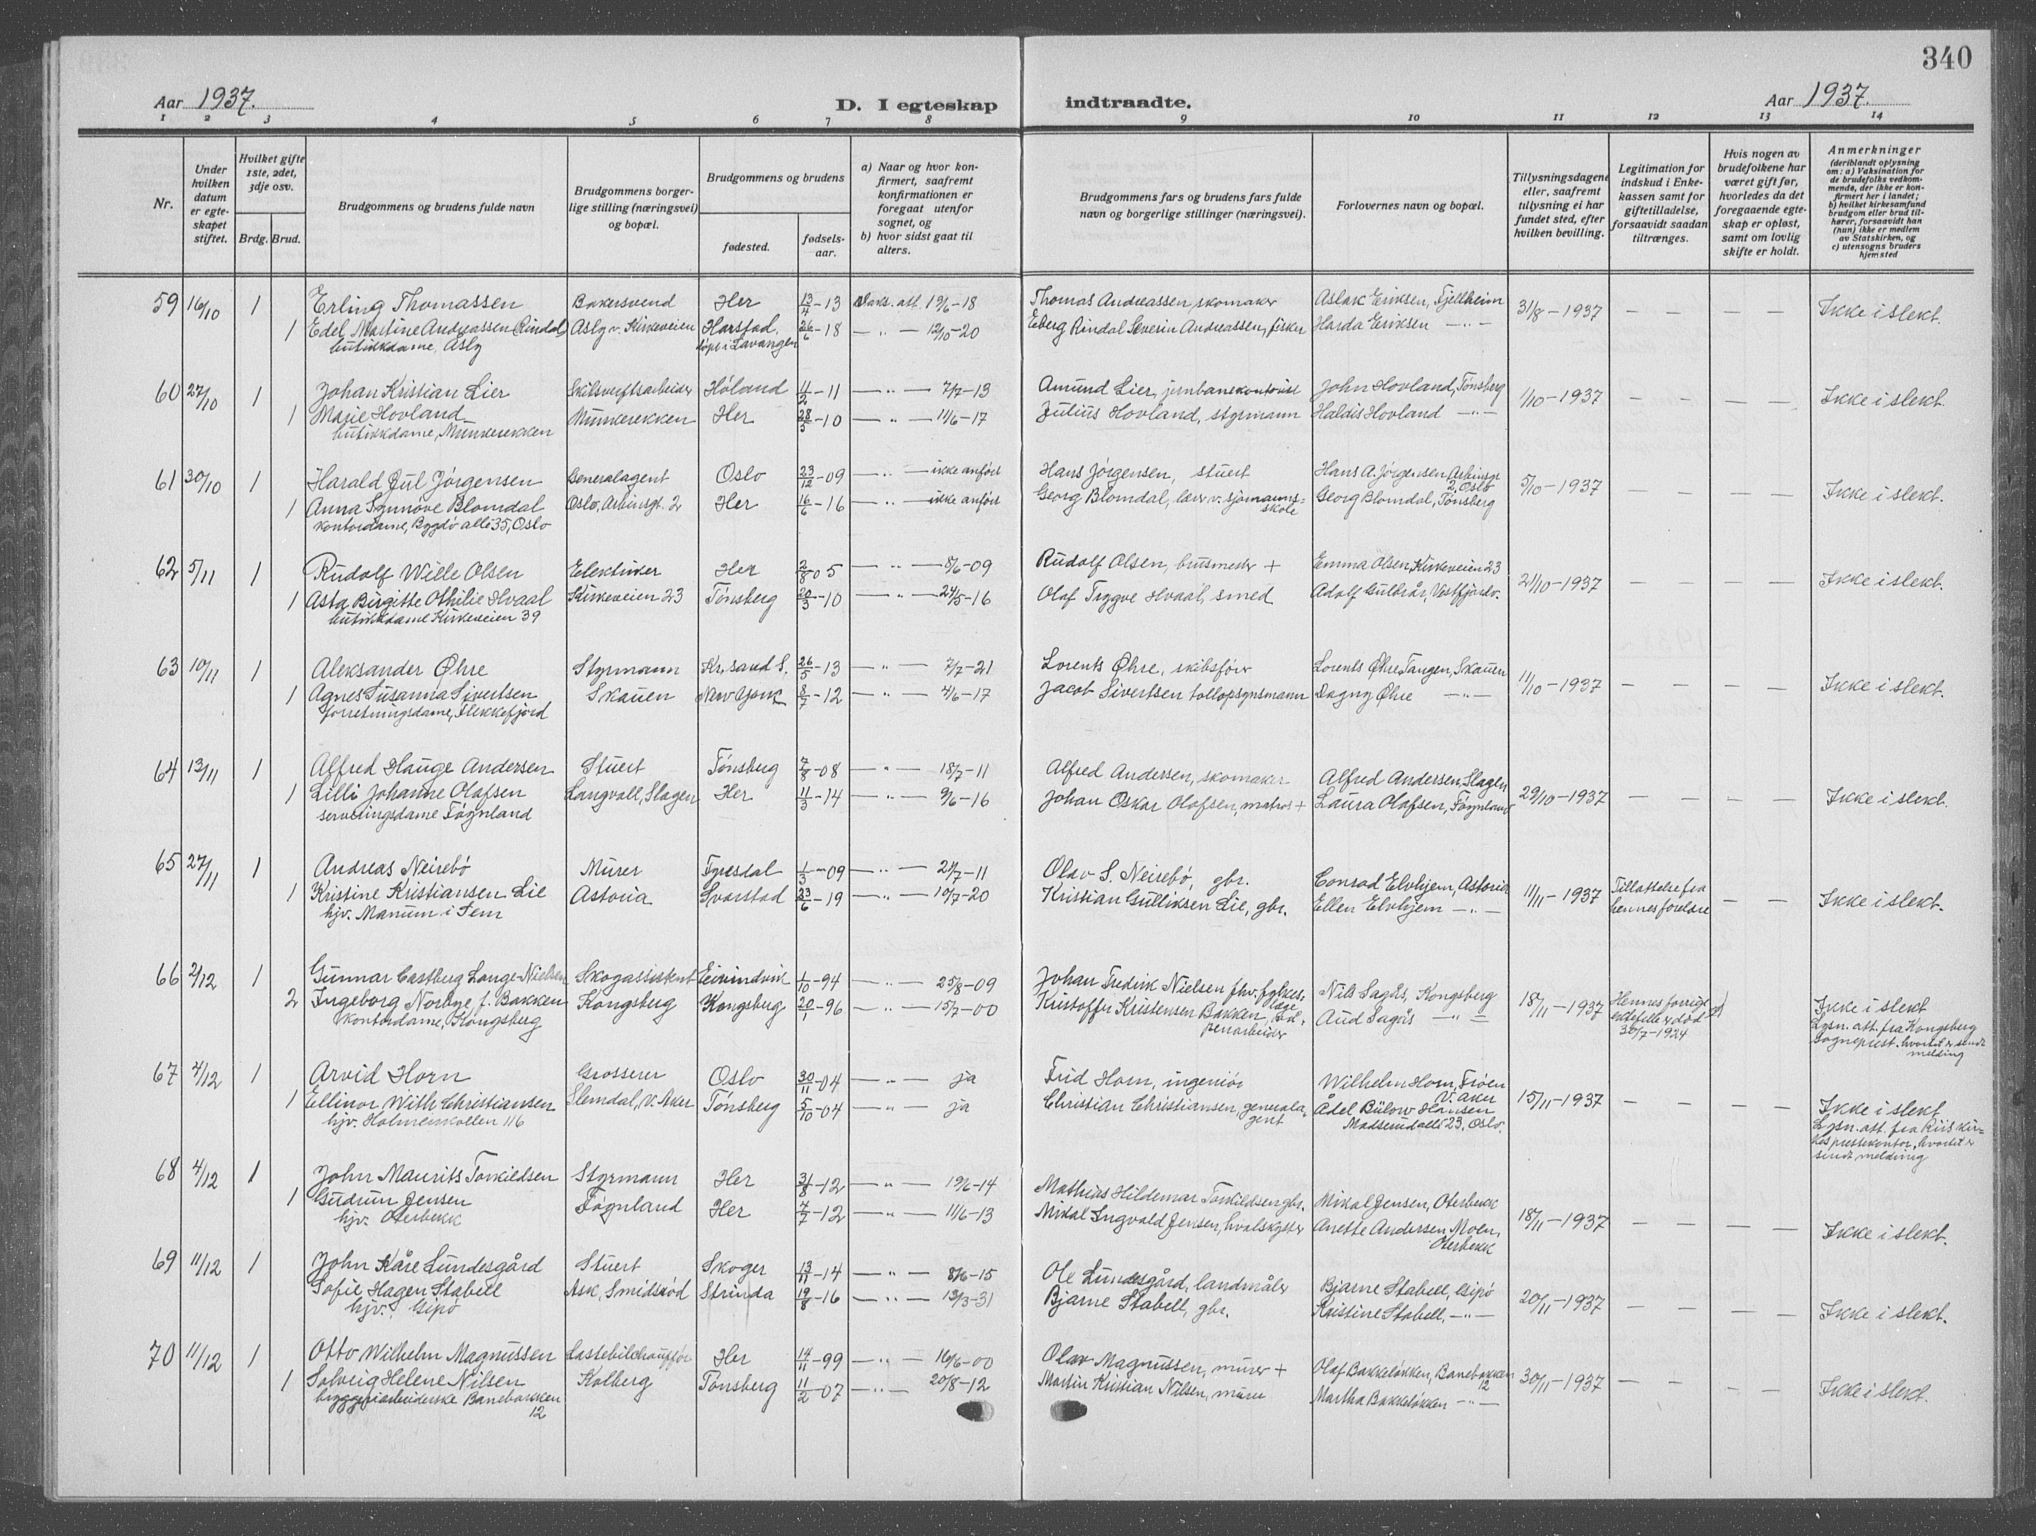 340
Aar 1937.
D. I egteskap indtraadte.
Aar 1937.
1 2 3 4 5 6 7 8 9 10 11 12 13 14
Nr.
Under hvilken datum er egteskapet stiftet.
Hvilket gifte 1ste, 2det, 3dje osv.
Brdg. Brud.
Brudgommens og brudens fulde navn
Brudgommens borgerlige stilling (næringsvei) og bopæl.
Brudgommens og brudens
fødested.
fødselsaar.
a) Naar og hvor konfirmert, saafremt konfirmationen er foregaat utenfor sognet, og
b) hvor sidst gaat til alters.
Brudgommens fars og brudens fars fulde navn og borgerlige stillinger (næringsvei).
Forlovernes navn og bopæl.
Tillysningsdagene eller, saafremt tillysning ei har fundet sted, efter hvilken bevilling.
Legitimation for indskud i Enkekassen samt for giftetilladelse, forsaavidt saadan tiltrænges.
Hvis nogen av brudefolkene har været gift før, hvorledes da det foregaaende egteskap er opløst, samt om lovlig skifte er holdt.
Anmerkninger
(deriblandt oplysning om: a) Vaksination for de brudefolks vedkommende, der ikke er konfirmert her i landet;
b) hvilket kirkesamfund brudgom eller brud tilhører, forsaavidt han (hun) ikke er medlem av Statskirken, og
c) utensogns bruders hjemsted
59 16/10 1 Erling Thomassen Bakersvend Her 13/4-13 Vaks. att. 19/6-18 Thomas Andreassen, skomaker Aslak Eriksen, Fjellheim 31/8-1937 – – – Ikke i slekt.
1 Edel Martine Andreassen (Rindal) Asly v. Kirkeveien Harstad, 26/6-18 — „ — 12/10-20 Eberg Rindal Severin Andreassen, fisker Harda Eriksen — „ —
butikkdame, Asly døpt i Lavangen
60 27/10 1 Johan Kristian Lier Skibsverftsarbeider Høland 11/2-11 — „ — 7/7-13 Amund Lier, jernbanekontorist John Hovland, Tønsberg 1/10-1937 – – – Ikke i slekt.
1 Marie Hovland Munkerekken Her 28/5-10 — „ — 11/6-17 Julius Hovland, styrmann Haldis Hovland — „ —
butikkdame, Munkerekken
61 30/10 1 Harald Jul Jørgensen Generalagent Oslo 23/12-09 — „ — ikke anført Hans Jørgensen, stuert Hans A. Jørgensen, Arbinsgt 2, Oslo 5/10-1937 – – – Ikke i slekt.
1 Anna Synnøve Blomdal Oslo, Arbinsgt. 2 Her 16/6-16 — „ — ikke anført Georg Blomdal, lærer v. sjømannsskole Georg Blomdal, Tønsberg
kontordame, Bygdø allé 35, Oslo
62 5/11 1 Rudolf Wille Olsen Elektriker Her 2/8 05 — „ — 8/6-09 Rudolf Olsen, + Emma Olsen, Kirkeveien 23 21/10-1937 – – – Ikke i slekt.
1 Asta Birgitte Othilie Hvaal Kirkeveien 23 Tønsberg 20/3-10 — „ — 24/5-16 Olaf Trygve Hvaal, smed Adolf Vestfjordv.
butikkdame Kirkeveien 39
63 10/11 1 Aleksander Øhre Styrmann Kr.sand S. 26/5-13 — „ — 7/7-21 Lorents Øhre, skibsfører Lorents Øhre Tangen, Skauen 11/10-1937 – – – Ikke i slekt.
1 Agnes Susanna Sivertsen Skauen New York 8/7-12 — „ — 4/6-17 Jacob Sivertsen tollopsynsmann Dagny Øhre — „ —
forretningsdame, Flekkefjord
64 13/11 1 Alfred Hauge Andersen Stuert Tønsberg 7/8-08 — „ — 18/7-11 Alfred Andersen, skomaker Alfred Andersen, Slagen 29/10-1937 – – – Ikke i slekt.
1 Lilli Johanne Olafsen Langvoll, Slagen Her 11/3-14 — „ — 9/6-16 Johan Oskar Olafsen, matros + Laura Olafsen, Føgnland
serveringsdame Føgnland
65 27/11 1 Andreas Neirebø Murer Fyresdal 1/3-09 — „ — 24/7-11 Olav S. Neirebø, gbr. Conrad Elvhjem, Astoria 11/11-1937 Tillatelse fra hennes foreldre – – Ikke i slekt.
1 Kristine Kristiansen Lie Astoria Svarstad 23/6-19 — „ — 10/7-20 Kristian Gulliksen Lie, gbr. Ellen Elvhjem — „ —
hjv. Manum i Sem
66 2/12 1 Gunnar Castberg Lange-Nielsen Skogassistent Eivindvik 1/10-94 — „ — 25/8-09 Johan Fredrik Nielsen fhv. fylkeslege Nils Sagås, Kongsberg 18/11-1937 Hennes forrige ektefelle død 30/7-1924 Ikke i slekt
2 Ingeborg Norbye f. Bakken Kongsberg Kongsberg 20/1-96 — „ — 15/7-00 Kristoffer Kristensen Bakken, våpenarbeider Aud Sagås — „ — Lysn. att. fra Kongsberg sogneprest, hvortil er sendt melding
kontordame, Kongsberg
67 4/12 1 Arvid Horn Grosserer Oslo 30/11-04 — „ — ja Frid Horn, ingeniør Wilhelm Horn, Frøen V. Aker 15/11-1937 – – – Ikke i slekt
1 Ellinor With Christiansen Slemdal, V. Aker Tønsberg 5/10-04 — „ — ja Christian Christiansen, generalagent Ådel Bülow Hansen Madserud allé 23, Oslo. Lysn. att. fra Riis kirkes prestekontor, hvortil er sendt melding
hjv. Holmenkollen 116
68 4/12 1 John Maurits Torkildsen Styrmann Her 31/8-12 — „ — 19/6-14 Mathias Hildemar Torkildsen gbr. Mikal Jensen, Oterbekk 18/11-1937 – – – Ikke i slekt.
1 Gudrun Jensen Føgnland Her 7/7-12 — „ — 11/6-13 Mikal Ingvald Jensen, hvalskytter Anette Andersen Moen, Oterbekk
hjv. Oterbekk
69 11/12 1 John Kåre Lundesgård Stuert Skoger 13/11-14 — „ — 8/6-15 Ole Lundesgård, landmåler Bjarne Stabell, Gipø 20/11-1937 – – – Ikke i slekt.
Sofie Hagen Stabell Ask, Smidsrød Strinda 19/8-16 — „ — 13/3-31 Bjarne Stabell, gbr. Kristine Stabell, — „ —
hjv. Gipø
70 11/12 1 Otto Wilhelm Magnussen Lastebilchauffør Her 14/11-99 — „ — 16/6-00 Olav Magnussen, murer + Olaf Bakkeløkken, Banebakken 12 30/11-1937 – – – Ikke i slekt.
1 Solveig Helene Nilsen Kolberg Tønsberg 11/2-07 — „ — 20/8-12 Martin Kristian Nilsen, murer Martha Bakkeløkken — „ —
bryggeriarbeiderske Banebakken 12